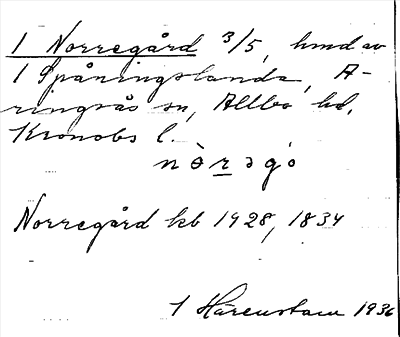 1 Norregård 3/5, hmd av
1 Spåningslanda, A-
ringsås sn, Allbo hd,
Kronobs l.
nòrəgó
Norregård kb 1928, 1834
1 Härenstam 1936